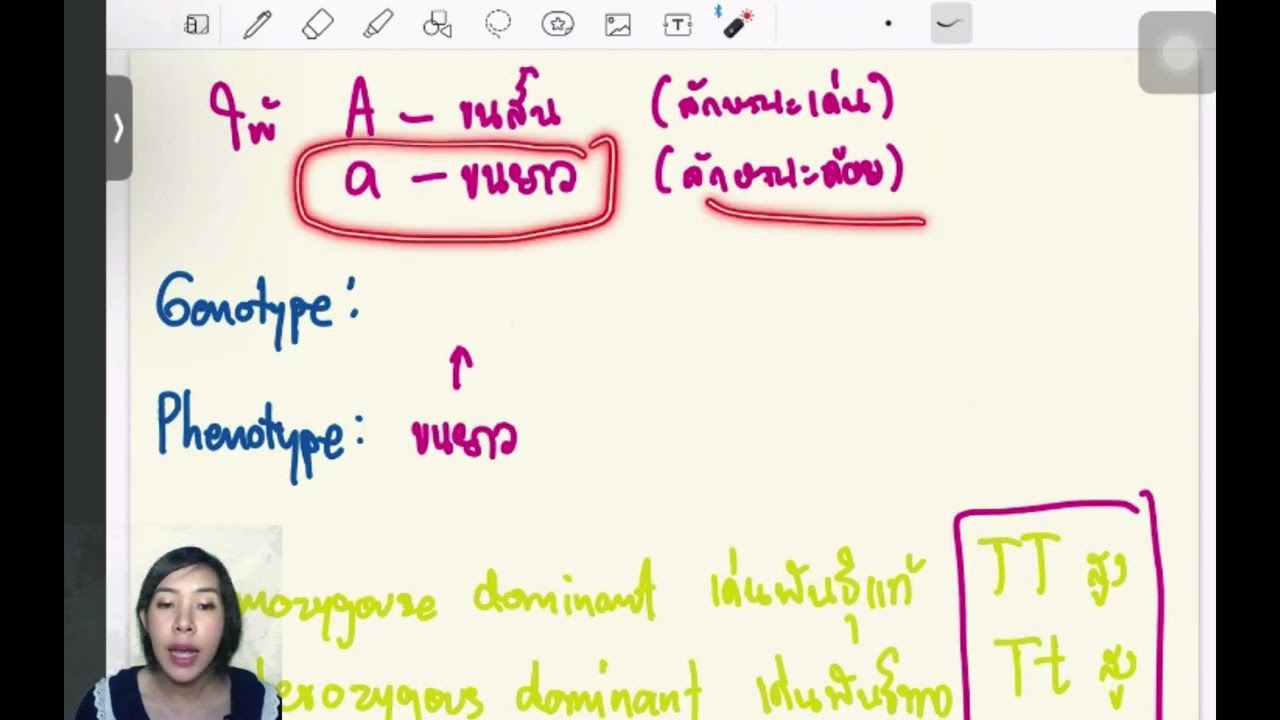 ให้ A - ขนสั้น (ลักษณะเด่น)
a - ขนยาว (ลักษณะด้อย)
Genotype:
↑
Phenotype: ขนยาว
mozygouse dominant เด่นพันธุ์แท้
TT สูง
terozygous dominant เด่นพันธุ์ทาง
Tt สูง